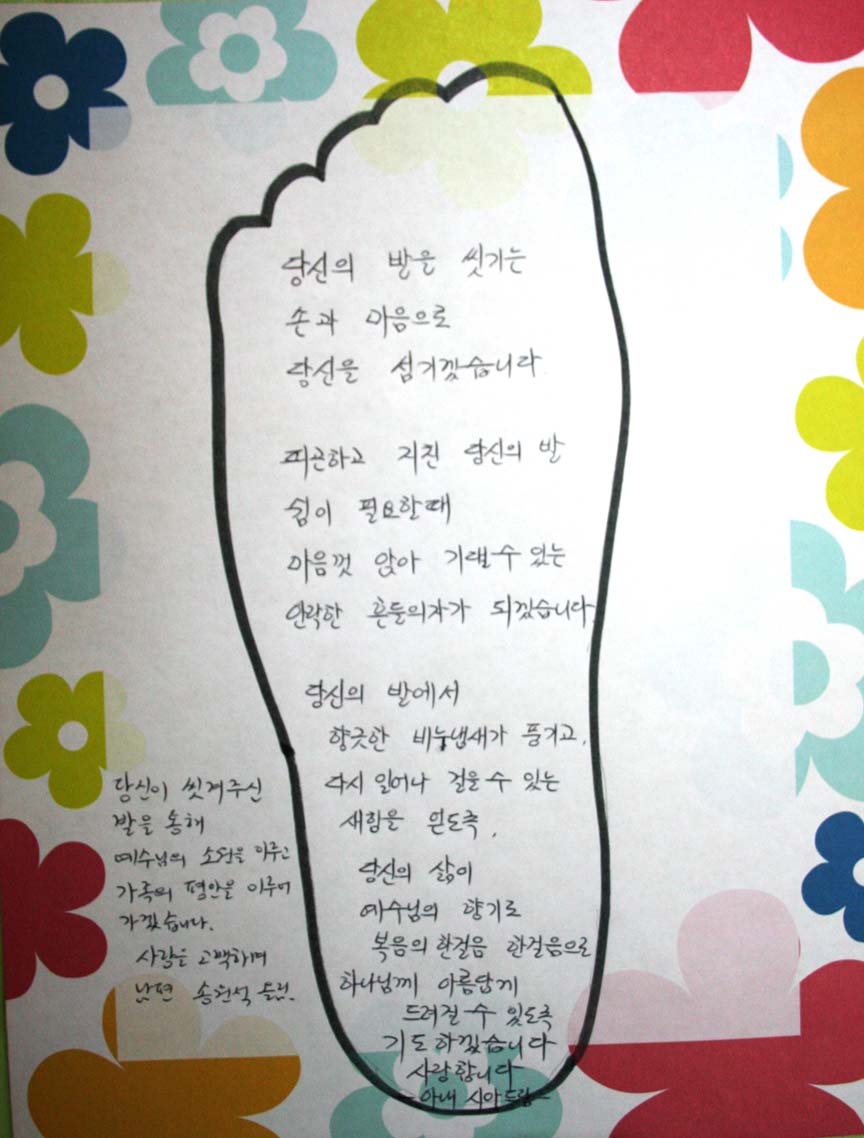 당신의 발을 씻기는
손과 마음으로
당신을 섬기겠습니다
피곤하고 지친 당신의 발
쉼이 필요할때
마음껏 앉아 기댈수 있는
안락한 흔들의자가 되겠습니다.
당신의 발에서
향긋한 비누냄새가 풍기고,
다시 일어나 걸을 수 있는
새힘을 얻도록,
당신의 삶이
예수님의 향기로
복음의 한걸음 한걸음으로
하나님께 아름답게
드려질 수 있도록
기도하겠습니다
사랑합니다
-아내 시아드림-
당신이 씻겨주신
발을 통해
예수님의 소원을 이루고
가족의 평안을 이루어
가겠습니다.
사랑을 고백하며
남편 송원석 드림.